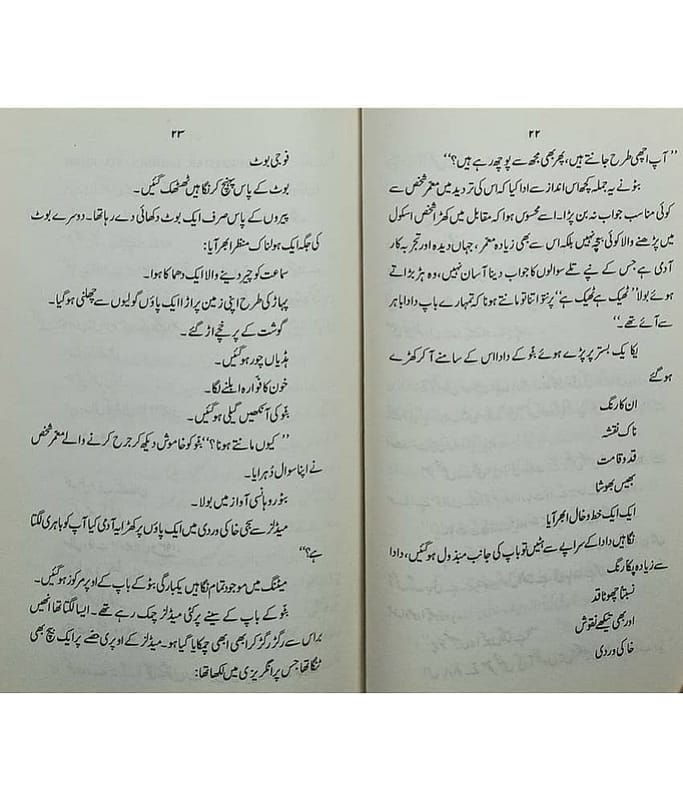 ۲۲
’’آپ اچھی طرح جانتے ہیں، پھر بھی مجھ سے پوچھ رہے ہیں؟‘‘
بنو نے یہ جملہ کچھ اس انداز سے ادا کیا کہ اس کی تردید میں معمر شخص سے
کوئی مناسب جواب نہ بن پڑا۔ اسے محسوس ہوا کہ مقابل میں کھڑا شخص اسکول
میں پڑھنے والا کوئی بچہ نہیں بلکہ اس سے بھی زیادہ معمر، جہاں دیدہ اور تجربہ کار
آدمی ہے جس کے نپے تلے سوالوں کا جواب دینا آسان نہیں، وہ ہڑبڑاتے
ہوئے بولا ’’ٹھیک ہے ٹھیک ہے‘‘ پر تو اتنا تو مانتے ہونا کہ تمہارے باپ دادا باہر
سے آئے تھے۔‘‘
یکایک بستر پر پڑے ہوئے بنو کے دادا اس کے سامنے آ کر کھڑے
ہو گئے
ان کا رنگ
ناک نقشہ
قد و قامت
بھیس بھوشا
ایک ایک خط و خال ابھر آیا
نگاہیں دادا کے سراپے سے ہٹیں تو باپ کی جانب مبذول ہو گئیں، دادا
سے زیادہ پکا رنگ
نسبتاً چھوٹا قد
اور بھی تیکھے نقوش
خاکی وردی
۲۳
فوجی بوٹ
بوٹ کے پاس پہنچ کر نگاہیں ٹھٹھک گئیں۔
پیروں کے پاس صرف ایک بوٹ دکھائی دے رہا تھا۔ دوسرے بوٹ
کی جگہ ایک ہولناک منظر ابھر آیا:
سماعت کو چیر دینے والا ایک دھماکا ہوا۔
پہاڑ کی طرح اپنی زمین پر اڑا ایک پاؤں گولیوں سے چھلنی ہو گیا۔
گوشت کے پرخچے اڑ گئے۔
ہڈیاں چور ہو گئیں۔
خون کا فوارہ ابلنے لگا۔
بنو کی آنکھیں گیلی ہو گئیں۔
’’کیوں مانتے ہونا؟‘‘ بنو کو خاموش دیکھ کر جرح کرنے والے معمر شخص
نے اپنا سوال دُہرایا۔
بنو روہانسی آواز میں بولا۔
میڈلز سے سجی خاکی وردی میں ایک پاؤں پر کھڑا یہ آدمی کیا آپ کو باہری لگتا
ہے؟‘‘
میٹنگ میں موجود تمام نگاہیں یکبارگی بنو کے باپ کے اوپر مرکوز ہو گئیں۔
بنو کے باپ کے سینے پر کئی میڈلز چمک رہے تھے۔ ایسا لگتا تھا انھیں
براس سے رگڑ رگڑ کر ابھی ابھی چمکایا گیا ہو۔ میڈلز کے اوپری حصے پر ایک بیج بھی
ٹنگا تھا جس پر انگریزی میں لکھا تھا: